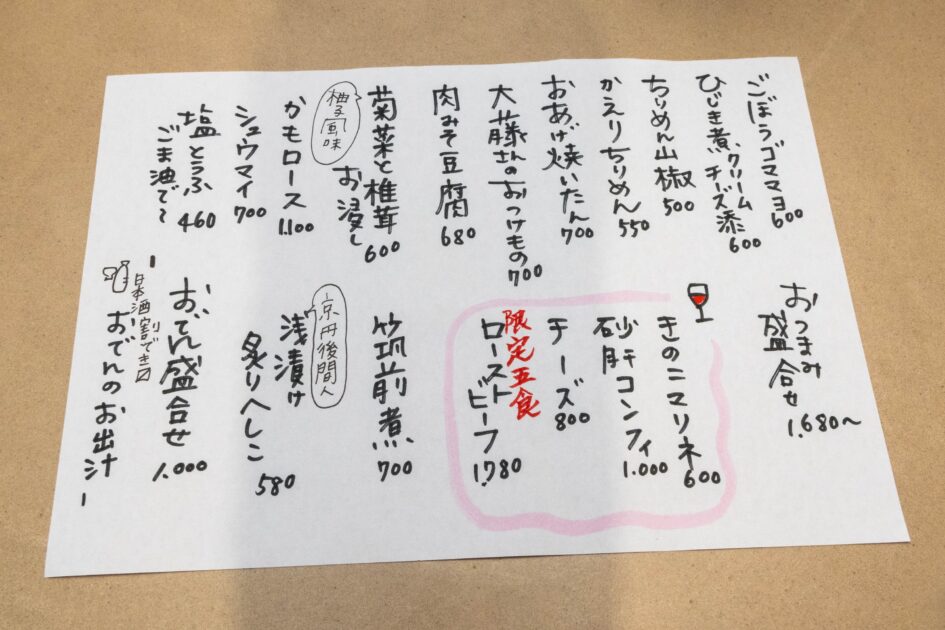 ごぼうゴママヨ
600
ひじき煮、クリーム
チーズ添
600
ちりめん山椒
500
かえりちりめん
550
おあげ焼いたん
700
大藤さんの
おつけもの
700
肉みそ豆腐
680
菊菜と椎茸
お浸し
600
柚子風味
かもロース
1.100
シュウマイ
700
塩とうふ
ごま油で〜
460
おつまみ
盛合せ
1.680〜
きのこマリネ
600
砂肝コンフィ
1.000
チーズ
800
限定五食
ローストビーフ
1.780
筑前煮
700
京丹後間人
浅漬け
炙りへしこ
580
おでん盛合せ
1.000
日本酒割できる
おでんのお出汁